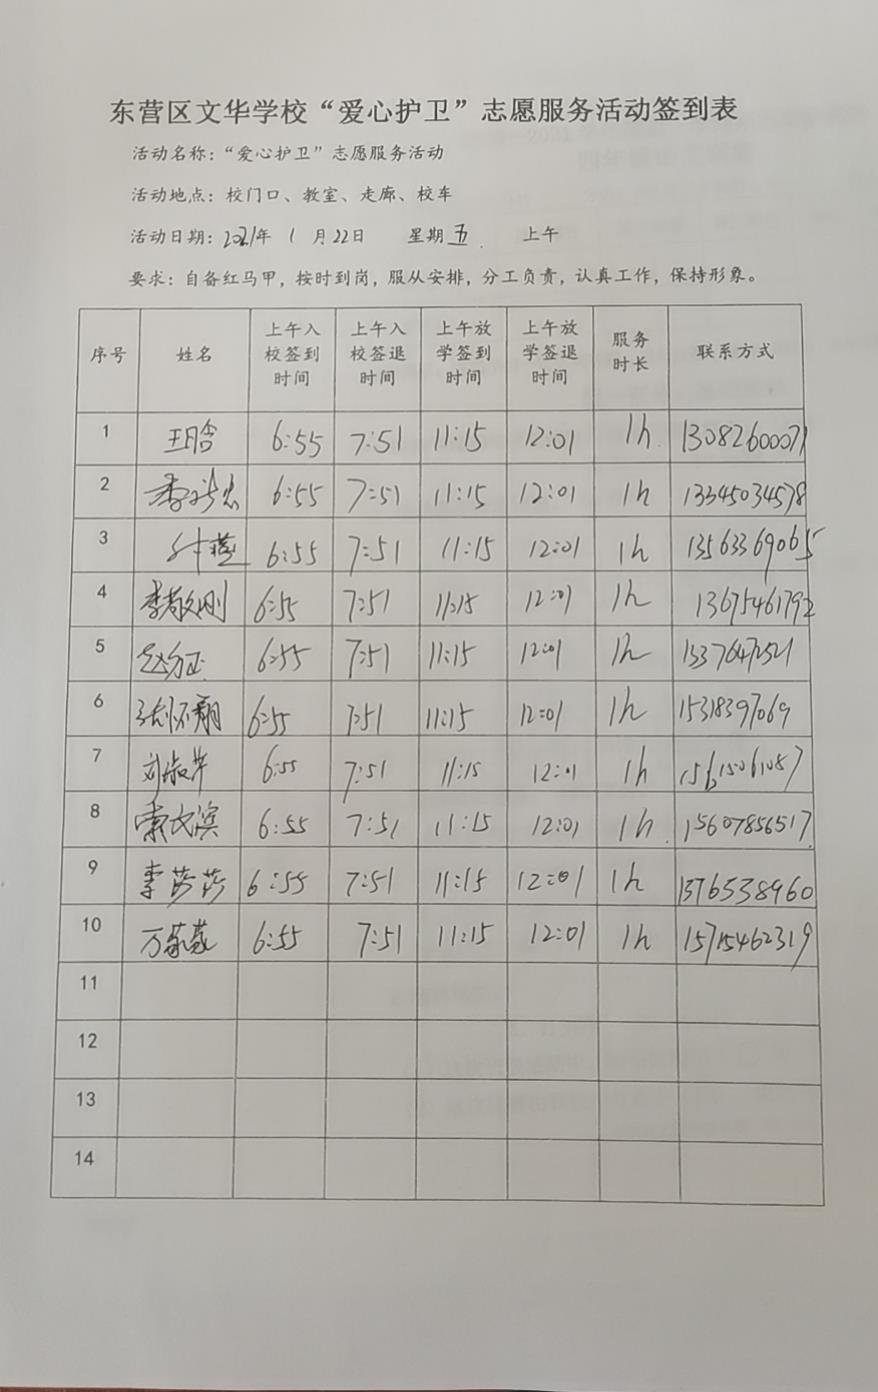 东营区文华学校“爱心护卫”志愿服务活动签到表
活动名称：“爱心护卫”志愿服务活动
活动地点：校门口、教室、走廊、校车
活动日期：2021年 1 月22日 星期五 上午
要求：自备红马甲，按时到岗，服从安排，分工负责，认真工作，保持形象。
序号 姓名 上午入校签到时间 上午入校签退时间 上午放学签到时间 上午放学签退时间 服务时长 联系方式
1 6:55 7:51 11:15 12:01 1h 13082600071
2 6:55 7:51 11:15 12:01 1h 13345034578
3 6:55 7:51 11:15 12:01 1h 13563369065
4 李敬刚 6:55 7:51 11:15 12:01 1h 13675461792
5 6:55 7:51 11:15 12:01 1h 13376472521
6 张怀翔 6:55 7:51 11:15 12:01 1h 15318397069
7 刘淑芹 6:55 7:51 11:15 12:01 1h 15615061087
8 索文滨 6:55 7:51 11:15 12:01 1h 15607856517
9 李莎莎 6:55 7:51 11:15 12:01 1h 1376538960
10 万蒙蒙 6:55 7:51 11:15 12:01 1h 15715462319
11
12
13
14